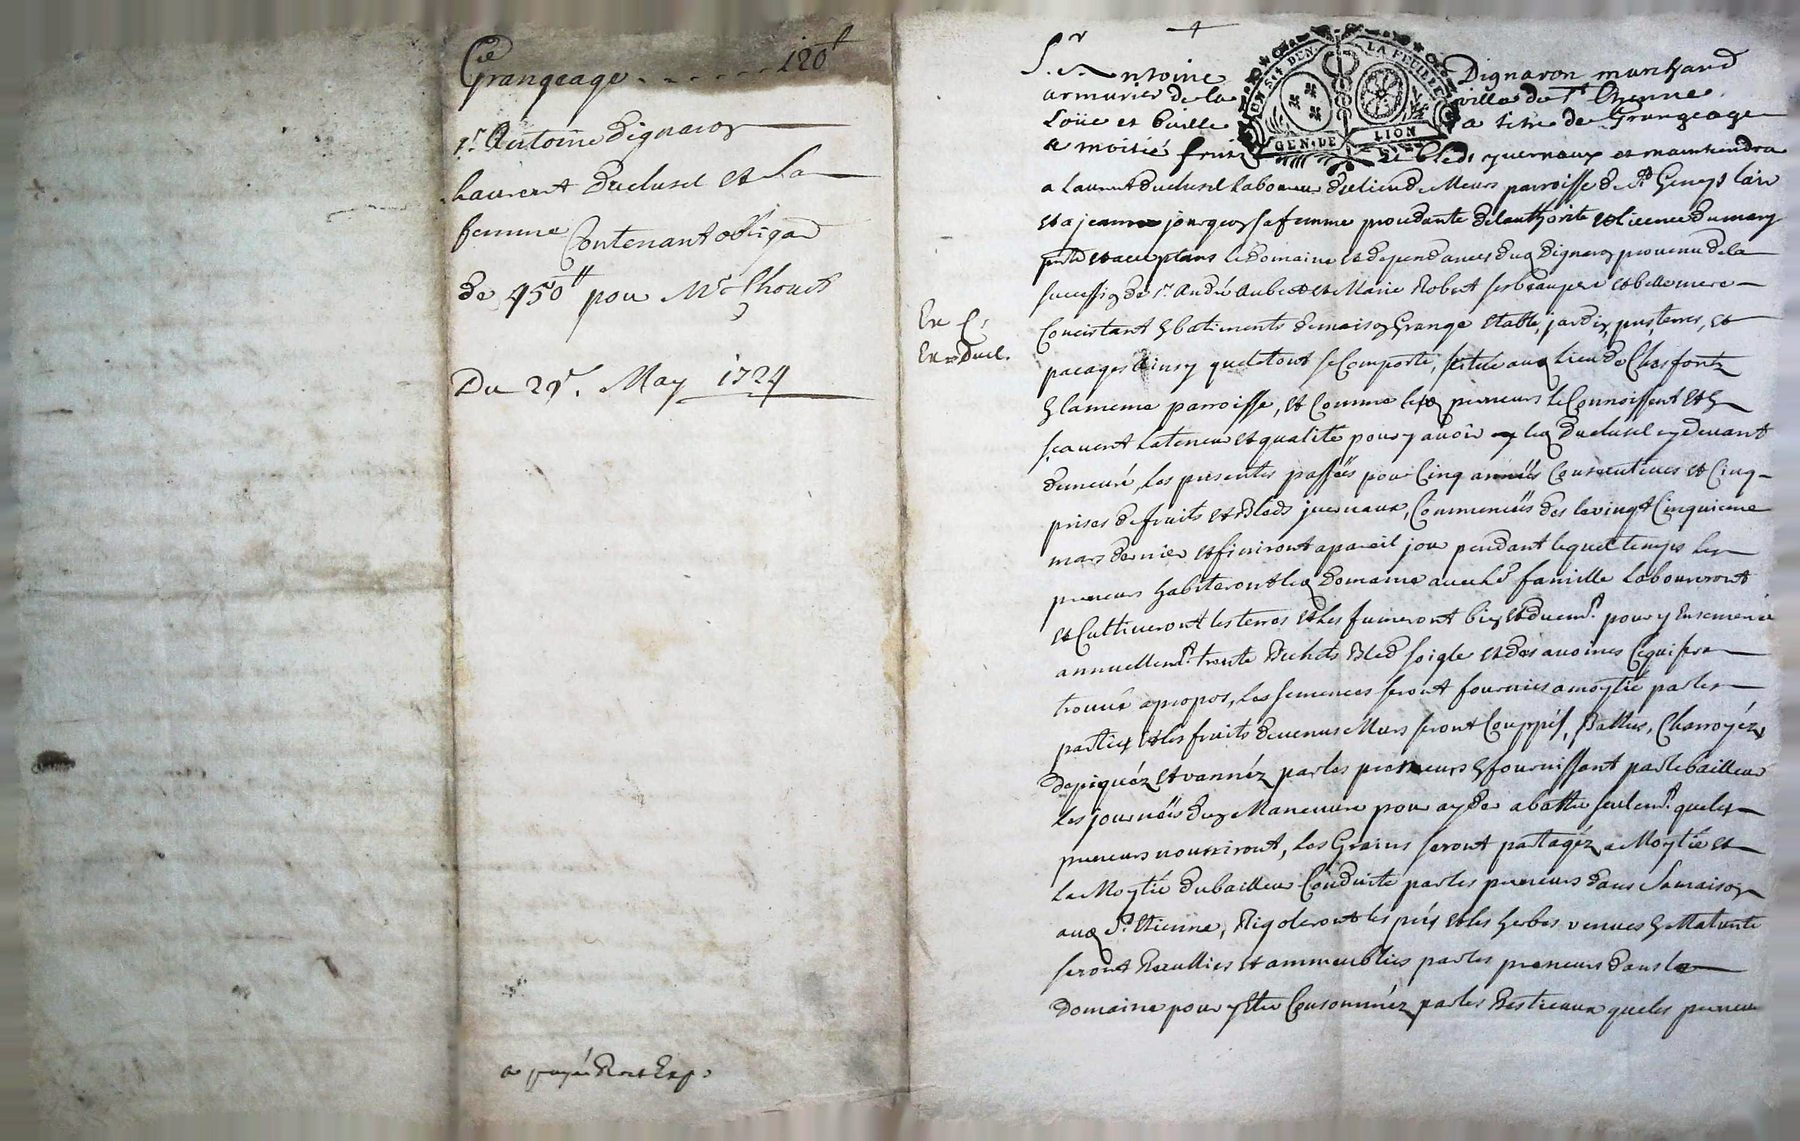 Cie
Grangeage . . . . . . . 120tt
Sr. Antoine Dignaron
Laurent Duclusel et sa
femme Contenant obligaō
de 450tt pour Me Thouct
Du 29e. May 1724
a payé Exp.
Sr. Antoine Dignaron marchand
armurier de la ville de St. Etienne
Loüe et baille a titre de Grangeage
a moitié fruitz et bleds yvernaux et
UN S. 4. DEN. LA FEUILLE
GEN. DE LION
a Laurent Duclusel laboureur du lieu de Meurs parroisse de St. Geneys lair
et a jeanne sa femme procedante de lauthorité et licence du mary
le domaine et dependances dud Dignaron provenu de la
succession de sr. André Aubert et Marie Robert ses beaupere et bellemere
Concistant en batiments de maison Grange etable, jardin, prés, terres, et
Ex C.
Ex Ducl.
pacages ainsy que le tout se Comporte, scitué aud lieu de Chesfontz
en la meme parroisse, et Comme lesd preneurs le Connoissent et en
sçavent la teneur et qualité pour y avoir led Duclusel cy devant
demeuré, Les presentes passées pour Cinq années Consecutives et Cinq
prises de fruits et Bleds yvernaux, Commencées des le vingt Cinquieme
mars dernier et finiront a pareil jour pendant lequel temps les
preneurs habiteront led Domaine avec le famille laboureront
et Cultiveront les terres et les fumeront bien et duemt. pour y Ensemencer
annuellemt. trente Bichets Bled soigle et des avoines Ce qui sera
trouvé a propos, Les semences seront fournies a moytié par les
parties et les fruits devenus Murs seront Couppés, Battus, Charroyéz
depiquéz et vannéz par les preneurs en fournissant par le bailleur
les journées dun Manouvre pour ayder a battre seulemt. que les
preneurs nourriront, Les Grains seront partagéz a Moytié et
la Moytié du bailleur Conduite par les preneurs dans sa maison
aud St. Etienne, Rigoleront les prés et les herbes venues en Maturité
seront Recullies et ammeublies par les preneurs dans le
Domaine pour y Etre Consomméz par les Bestieaux que les preneurs